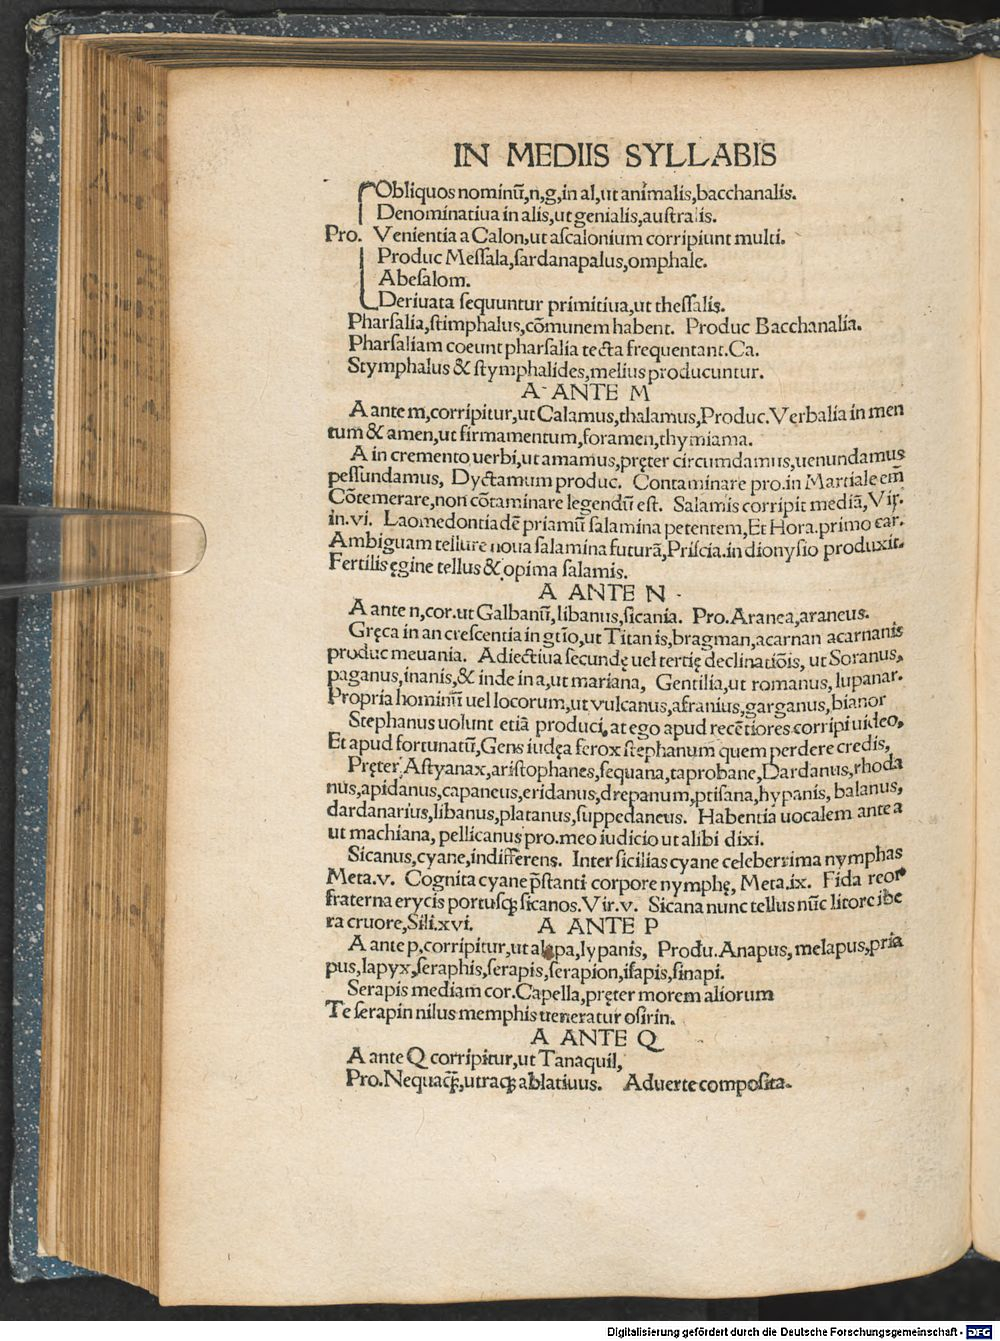 IN MEDIIS SYLLABIS
Obliquos nominū,n,g,in al,ut animalis,bacchanalis.
Denominatiua in alis,ut genialis,auſtralis.
Pro. Venientia a Calon,ut aſcalonium corripiunt multi.
Produc Meſſala,ſardanapalus,omphale.
Abeſalom.
Deriuata ſequuntur primitiua,ut theſſalis.
Pharſalia,ſtimphalus,cōmunem habent. Produc Bacchanalia.
Pharſaliam coeunt pharſalia tecta frequentant.Ca.
Stymphalus & ſtymphalides,melius producuntur.
A ANTE M
A ante m,corripitur,ut Calamus,thalamus,Produc.Verbalia in men
tum & amen,ut firmamentum,foramen,thymiama.
A in cremento uerbi,ut amamus,pręter circumdamus,uenundamus
peſſundamus, Dyctamum produc. Contaminare pro.in Martiale em̄
Cōtemerare,non cōtaminare legendū eſt. Salamis corripit mediā,Vir.
in.vi. Laomedontiadē priamū ſalamina petentem,Et Hora.primo car.
Ambiguam tellure noua ſalamina futurā,Priſcia.in dionyſio produxit.
Fertilis ęgine tellus & opima ſalamis.
A ANTE N
A ante n,cor.ut Galbanū,libanus,ſicania. Pro.Aranea,araneus.
Gręca in an creſcentia in gtīo,ut Titanis,bragman,acarnan acarnanis
produc meuania. Adiectiua ſecundę uel tertię declinatiōis, ut Soranus,
paganus,inanis,& inde in a,ut mariana, Gentilia,ut romanus, lupanar.
Propria hominū uel locorum,ut vulcanus,afranius,garganus,bianor
Stephanus uolunt etiā produci,at ego apud recētiores corripi uideo,
Et apud fortunatū,Gens iudęa ferox ſtephanum quem perdere credis,
Pręter Aſtyanax,ariſtophanes,ſequana,taprobane,Dardanus,rhoda
nus,apidanus,capaneus,eridanus,drepanum,ptiſana,hypanis, balanus,
dardanarius,libanus,platanus,ſuppedaneus. Habentia uocalem ante a
ut machiana, pellicanus pro.meo iudicio ut alibi dixi.
Sicanus,cyane,indifferens. Inter ſicilias cyane celeberrima nymphas
Meta.v. Cognita cyane p̄ſtanti corpore nymphę, Meta.ix. Fida reor
fraterna erycis portuſqꝫ ſicanos.Vir.v. Sicana nunc tellus nūc litore ibe
ra cruore,Sili.xvi. A ANTE P
A ante p,corripitur,ut alapa,lypanis, Produ.Anapus, melapus,pria
pus,Iapyx,ſeraphis,ſerapis,ſerapion,iſapis,ſinapi.
Serapis mediam cor.Capella,pręter morem aliorum
Te ſerapin nilus memphis ueneratur oſirin.
A ANTE Q
A ante Q corripitur,ut Tanaquil,
Pro.Nequaqꝫ,utraqꝫ ablatiuus. Aduerte compoſita.
Digitalisierung gefördert durch die Deutsche Forschungsgemeinschaft - DFG